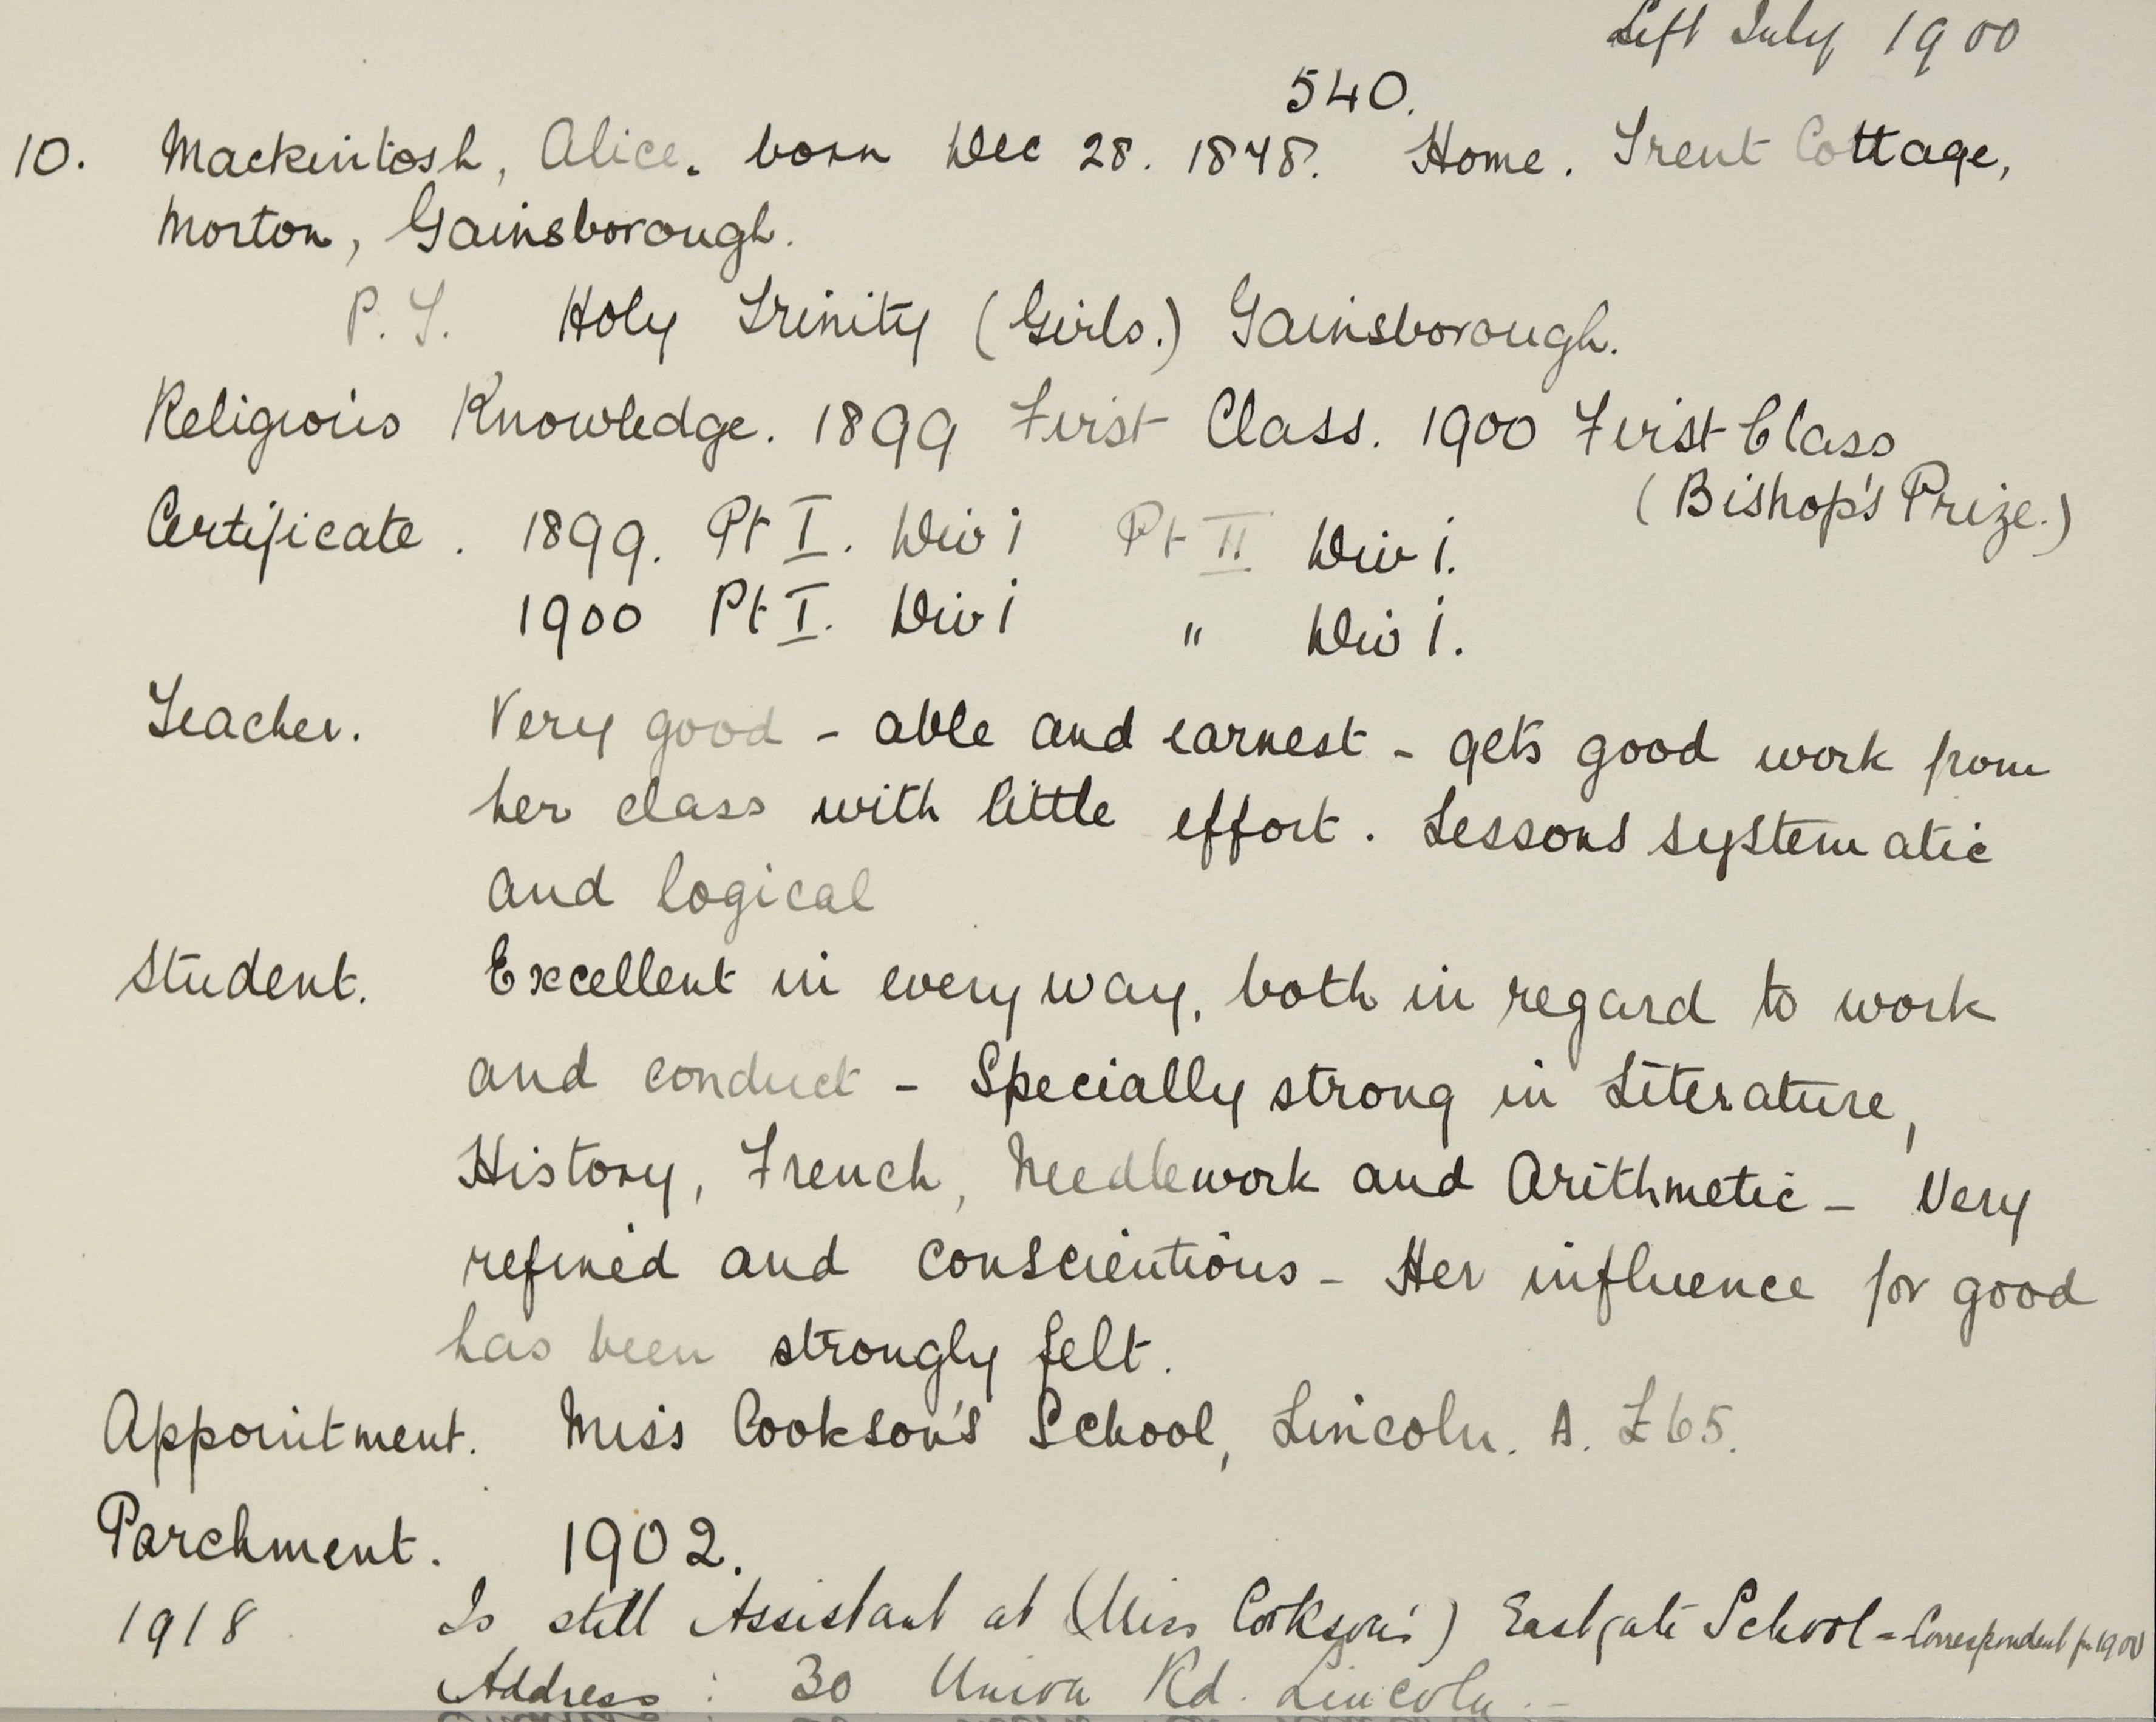 Left July 1900
540.
10. Mackintosh, Alice. born Dec 28. 1878. Home. Trent Cottage,
Morton, Gainsborough.
P.T. Holy Trinity (Girls.) Gainsborough.
Religious Knowledge. 1899 First Class. 1900 First Class
(Bishop's Prize.)
Certificate. 1899. Pt I. Div i Pt II Div i.
1900 Pt I. Div i " Div i.
Teacher. Very good - able and earnest - gets good work from
her class with little effort. Lessons systematic
and logical
Student. Excellent in every way, both in regard to work
and conduct - Specially strong in Literature,
History, French, Needlework and Arithmetic - Very
refined and conscientious - Her influence for good
has been strongly felt.
Appointment. Miss Cookson's School, Lincoln. A. £65.
Parchment. 1902.
1918 Is still Assistant at (Miss Cookson's) Eastgate School - Correspondent for 1900
Address: 30 Union Rd. Lincoln. -